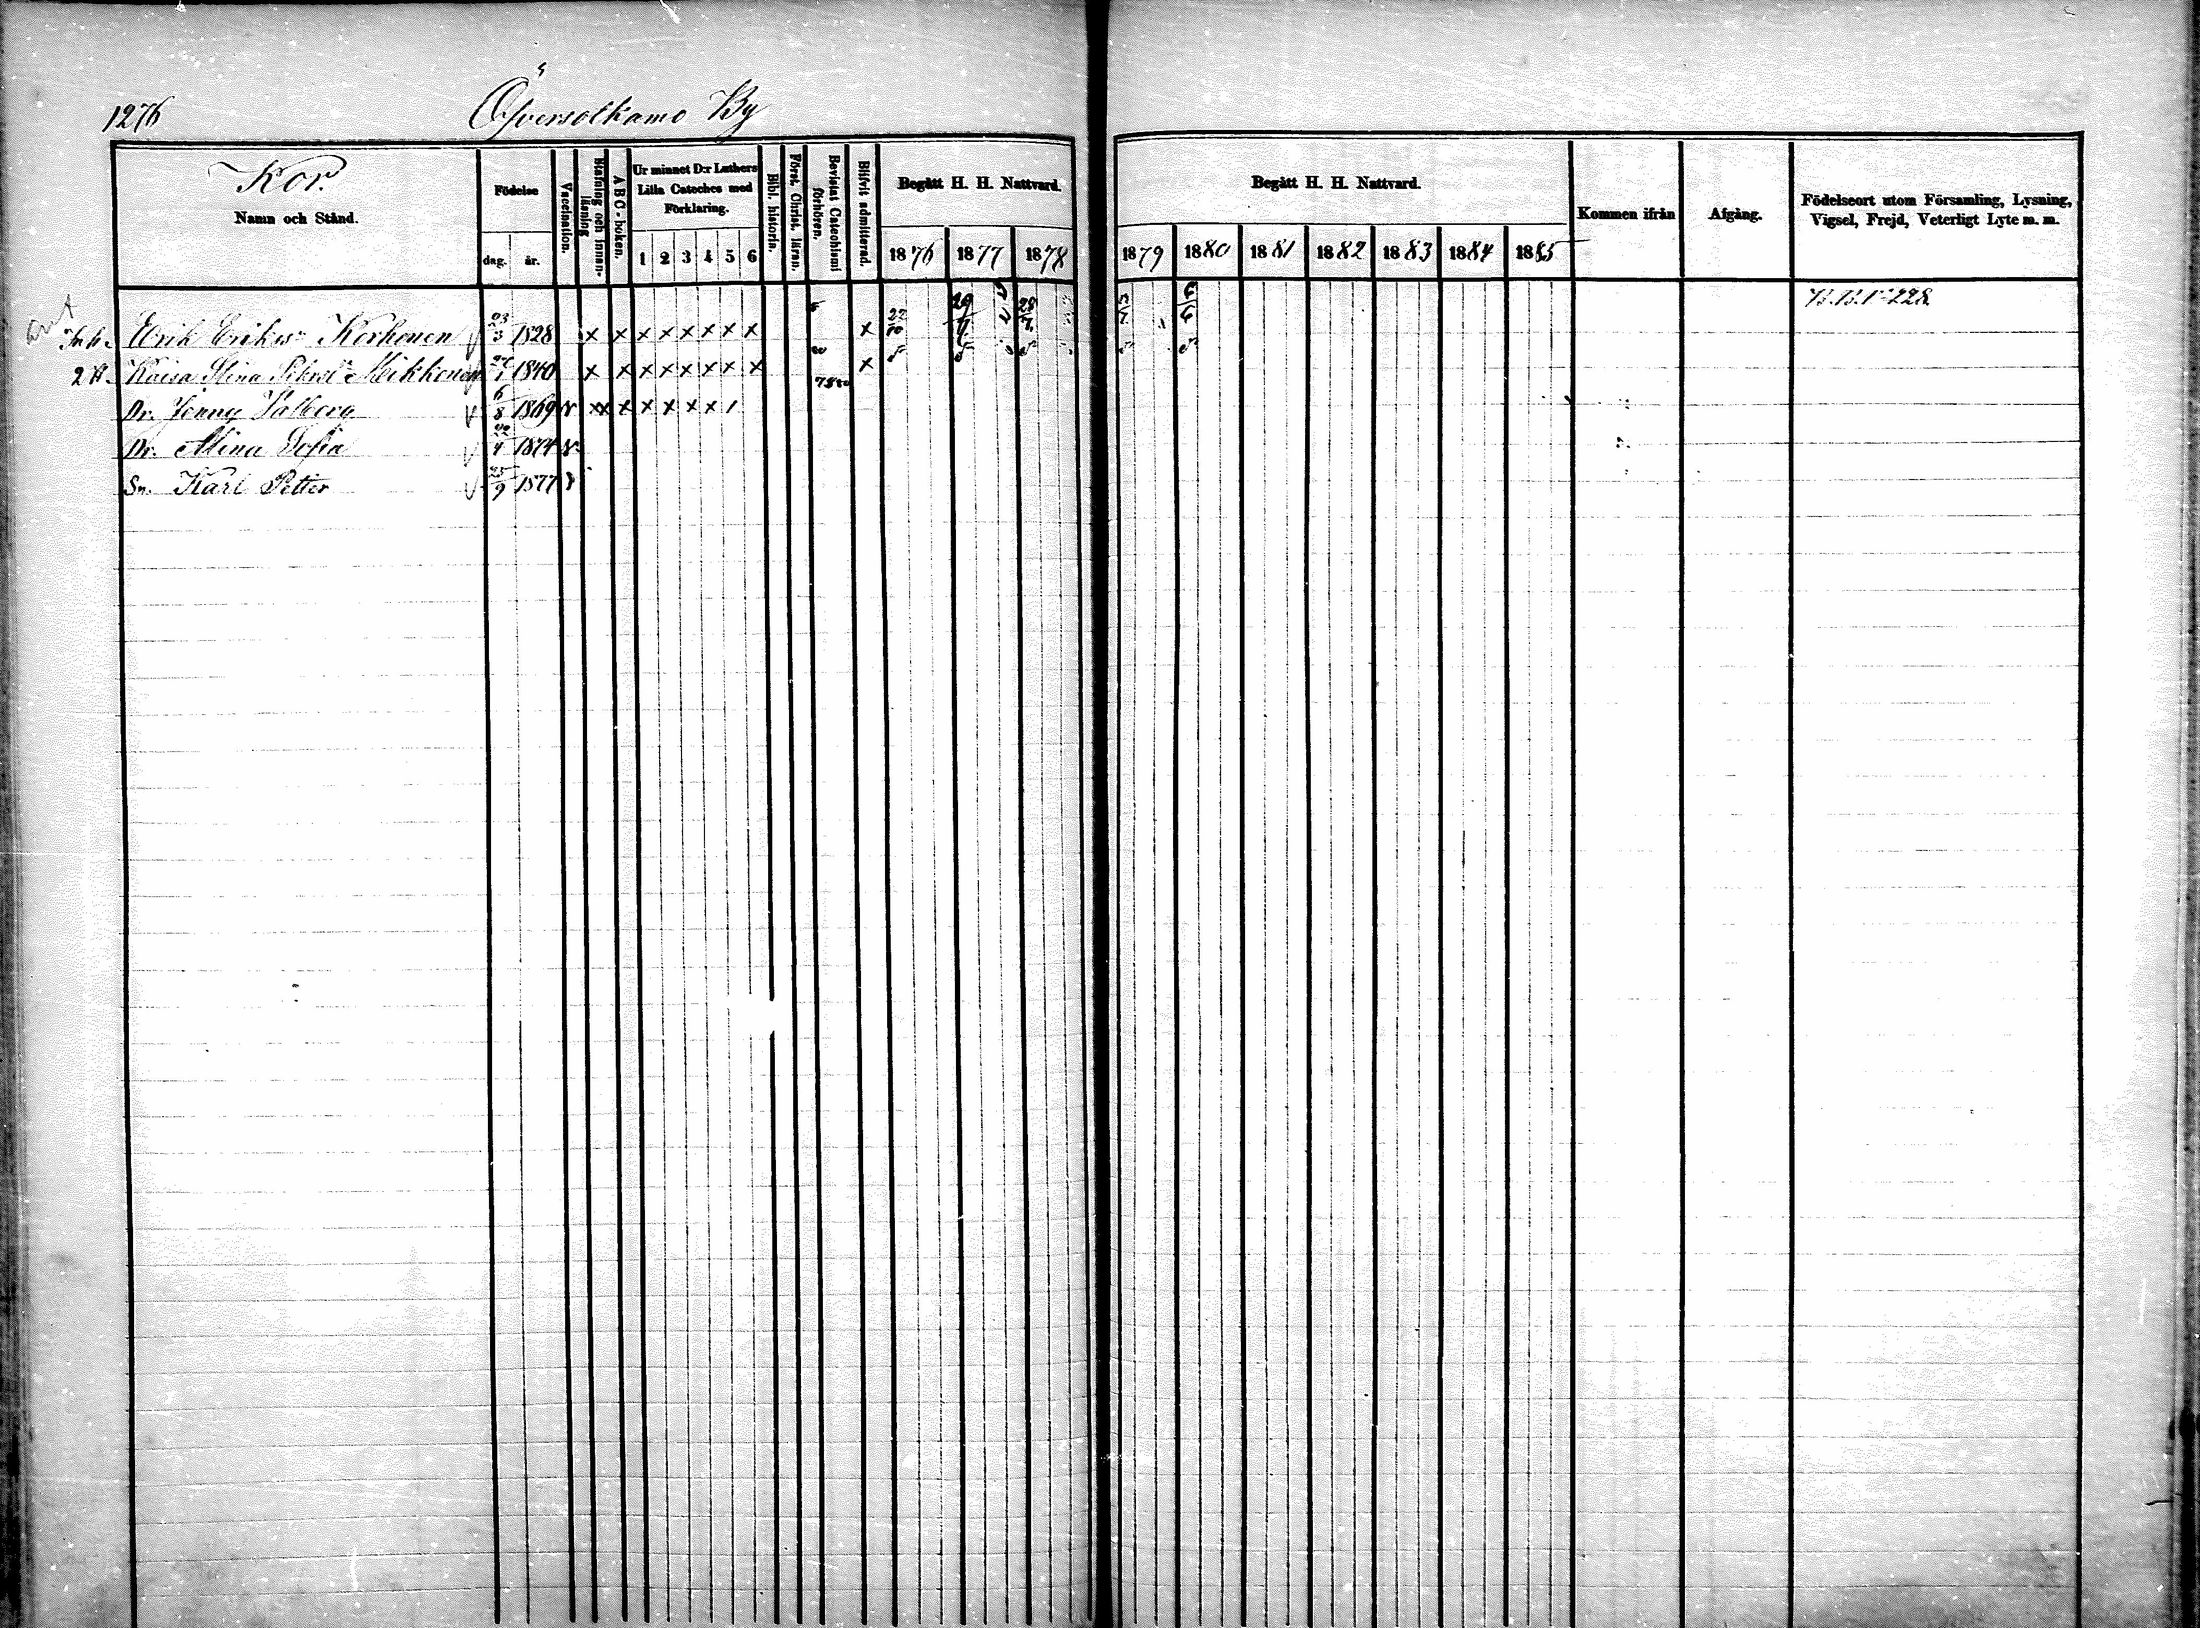 1276
Öfversotkamo By
Kor.
Namn och Stånd.
Födelse
dag.
år.
Vaccination.
Stafning och innan-läsning
A B C-boken.
Ur minnet D:r Luthers
Lilla Cateches med
Förklaring.
1 2 3 4 5 6
Bibl. historia.
Först. Christ. läran.
Bevistat Catechismi förhören.
Blifvit admitterad.
Begått H. H. Nattvard.
1876 1877 1878
Begått H. H. Nattvard.
1879 1880 1881 1882 1883 1884 1885
Kommen ifrån
Afgång.
Födelseort utom Församling, Lysning,
Vigsel, Frejd, Veterligt Lyte m. m.
Inh. Erik Eriksn Korhonen 23/3 1828 x x x x x x x x x 22/10
2 H. Kaisa Stina Mikkonen 1840 x x x x x x x x x
Dr. Jenny Valborg 6/8 1869 v x x x x x x x
Dr. Alina Sofia 22/4 1874 v
Sn. Karl Petter 25/9 1877